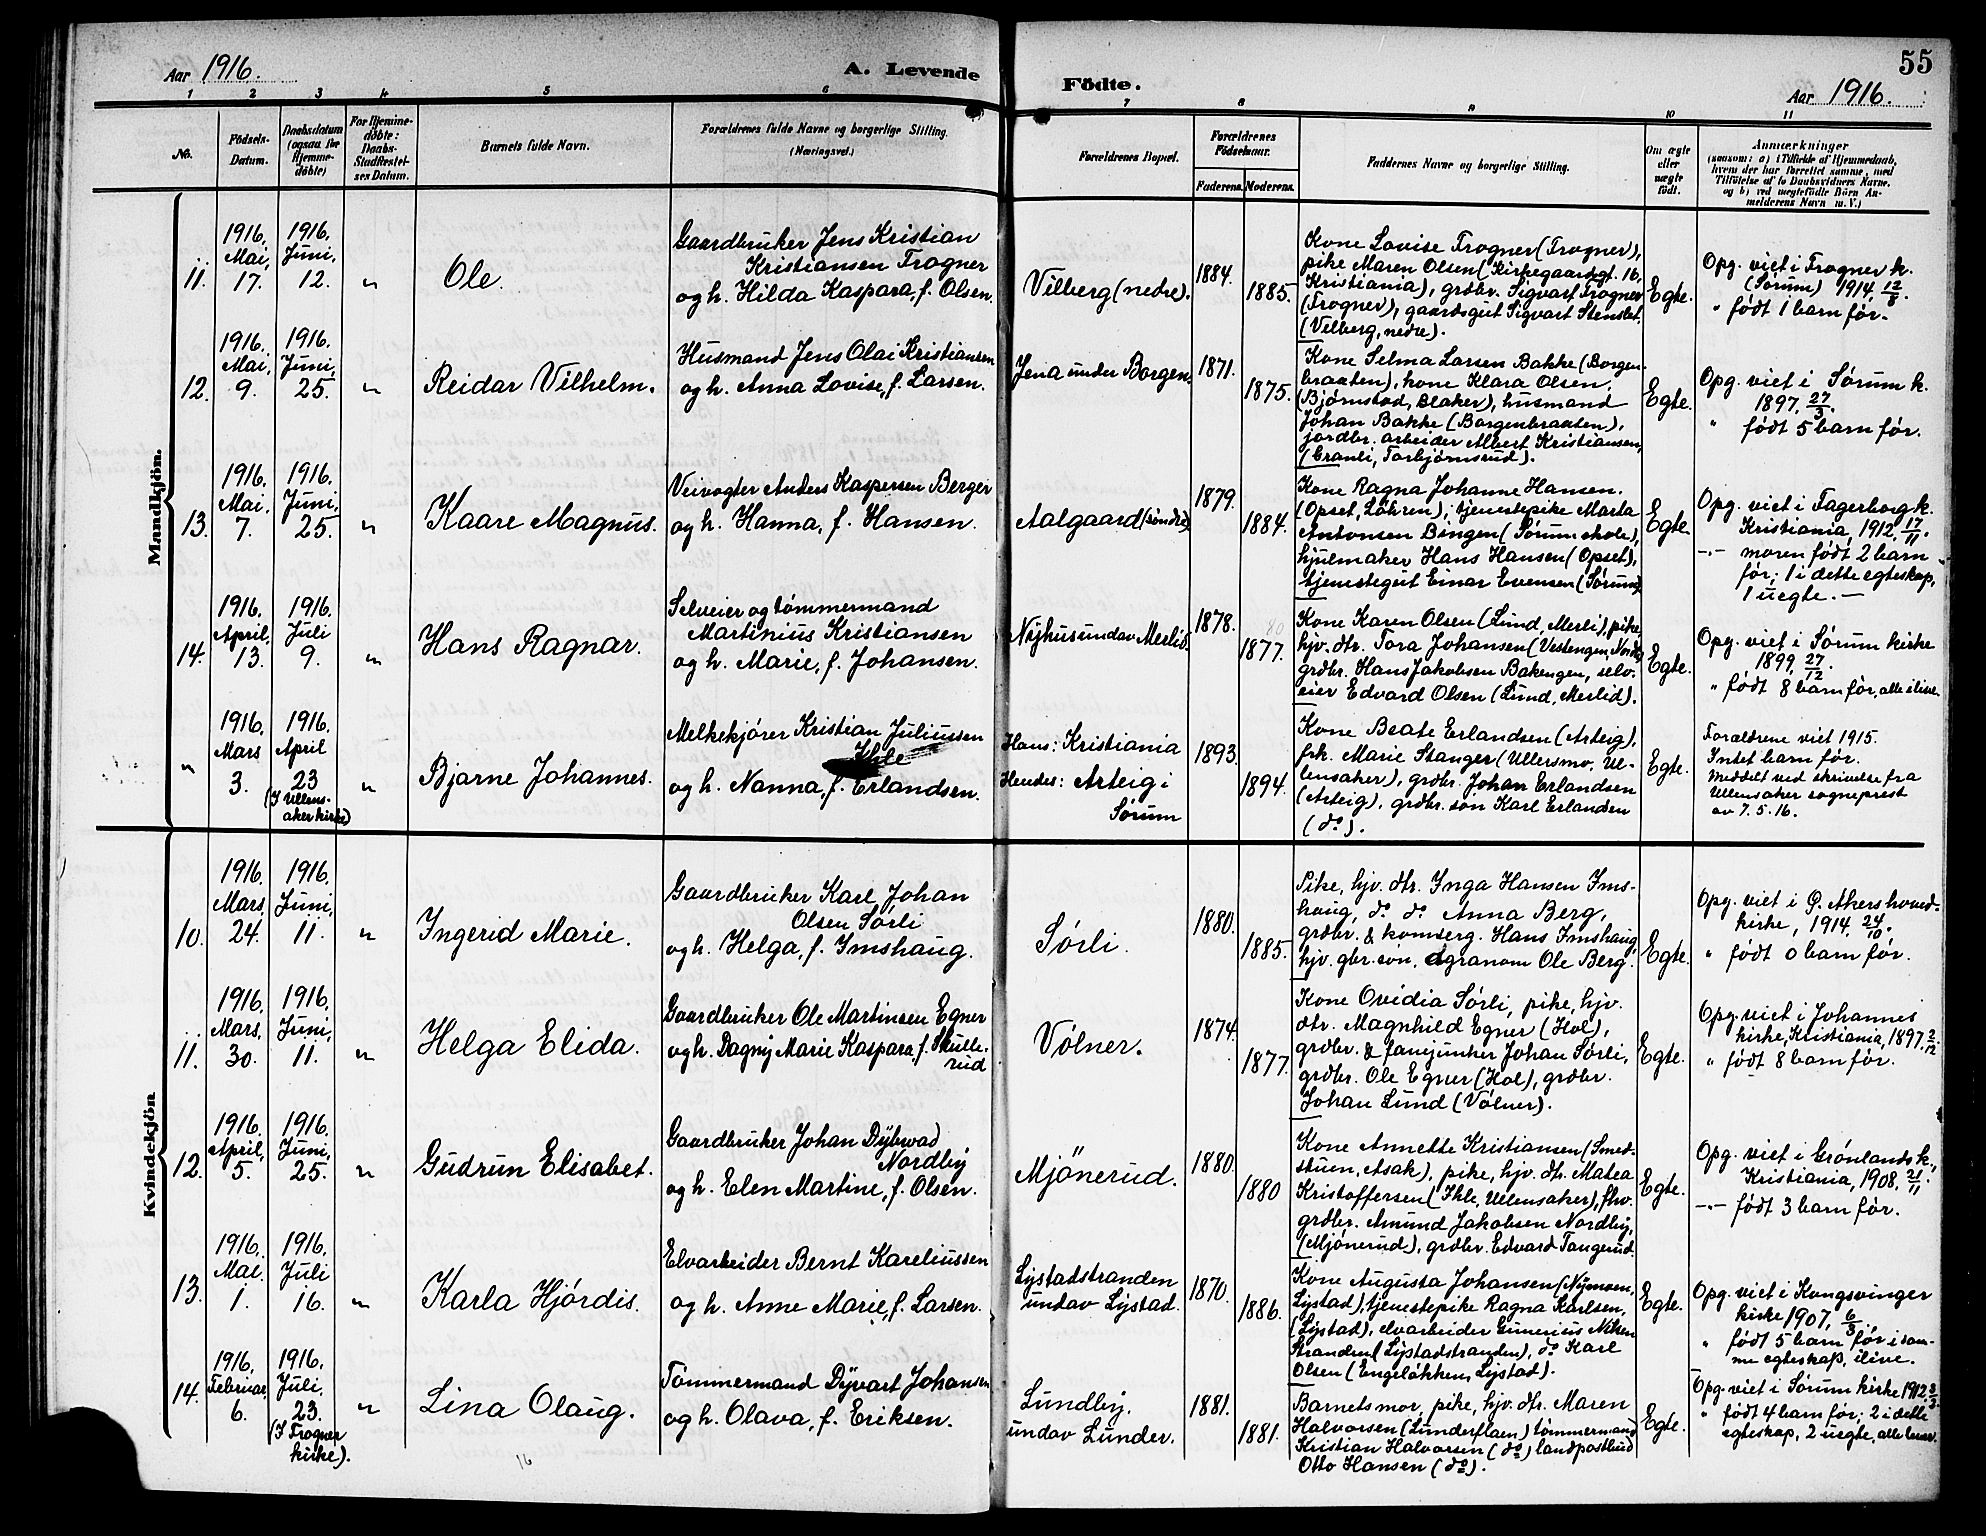 Aar 1916.
A. Levende
Födte.
55
Aar 1916.
1 2 3 4 5 6 7 8 9 10 11
No.
Födsels-
Datum.
Daabsdatum
(ogsaa for
Hjemme-
döbte)
For Hjemme-
döbte:
Daabs-
Stadfæstel-
ses Datum.
Barnets fulde Navn.
Forældrenes fulde Navne og borgerlige Stilling.
(Næringsvei.)
Forældrenes Bopæl.
Forældrenes
Födselsaar.
Faderens. Moderens.
Faddernes Navne og borgerlige Stilling.
Om ægte
eller
uægte
födt.
Anmærkninger
(saasom: a) i Tilfælde af Hjemmedaab,
hvem der har forrettet samme, med
Tilföielse af to Daabsvidners Navne.
og b) ved uegtefödte Börn An-
melderens Navn m. V.)
Mandkjön.
11.
1916.
Mai,
17.
1916.
Juni,
12.
"
Ole.
Gaardbruker Jens Kristian
Kristiansen Frogner
og h. Hilda Kaspara, f. Olsen.
Vilberg (nedre).
1884.
1885.
Kone Lovise Frogner (Frogner),
pike Maren Olsen (Kirkegaardsgt. 16,
Kristiania), grdbr. Sigvart Frogner
(Frogner), gaardsgut Sigvart Stenslet,
(Vilberg, nedre).
Egte.
Opg. viet i Frogner k.
(Sørum) 1914, 12/8.
" født 1 barn før.
12.
1916.
Mai,
9.
1916.
Juni,
25.
"
Reidar Vilhelm.
Husmand Jens Olai Kristiansen
og h. Anna Lovise, f. Larsen.
Jena under Borgen.
1871.
1875.
Kone Selma Larsen Bakke (Borgen-
braaten), kone Klara Olsen,
(Bjørnstad, Blaker), husmand
Johan Bakke (Borgenbraaten),
jordbr. arbeider Albert Kristiansen,
(Granli, Torbjørnsrud).
Egte.
Opg. viet i Sørum k.
1897. 27/3.
" født 5 barn før.
13.
1916.
Mai,
7.
1916.
Juni,
25.
"
Kaare Magnus.
Veivogter Anders Kaspersen Berger
og h. Hanna, f. Hansen.
Aalgaard (søndre)
1879.
1884.
Kone Ragna Johanne Hansen.
(Opset, Løhren), tjenestepike Marta
Antonsen Bingen (Sørum skole),
hjulmaker Hans Hansen (Opset),
tjenstegut Einar Evensen (Sørum)
Egte.
Opg. viet i Fagerborg k.
Kristiania, 1912, 17/11.
-"- moren født 2 barn
før; 1 i dette egteskap,
1 uegte. —
14.
1916.
April,
13.
1916.
Juli
9.
"
Hans Ragnar.
Selveier og tømmermand
Martinius Kristiansen
og h. Marie, f. Johansen.
Nyhus undav Merlid.
1878.
80
1877.
Kone Karen Olsen (Lund, Merli), pike,
hjv. dtr. Tora Johansen (Vestengen, Nordli)
grdbr. Hans Jakobsen Bakengen, selv-
eier Edvard Olsen (Lund, Merlid).
Egte.
Opg. viet i Sørum kirke
1899, 27/12.
" født 8 barn før, alle ilive.
"
1916.
Mars
3.
1916.
April
23
(I Ullens-
aker kirke)
"
Bjarne Johannes.
Melkekjører Kristian Juliussen
Ihle
og h. Nanna, f. Erlandsen.
Hans: Kristiania
Hendes: Arteig i
Sørum
1893.
1894.
Kone Beate Erlandsen (Arteig),
frk. Marie Stanger (Ullersmo, Ul-
lensaker), grdbr. Johan Erlandsen
(Arteig), grdbr. søn Karl Erlandsen
(do).
Egte.
Forældrene viet 1915.
Intet barn før.
Meddelt ved skrivelse fra
Ullensaker sogneprest
av 7.5.16.
Kvindekjön
10.
1916.
Mars,
24.
1916.
Juni,
11.
"
Ingerid Marie.
Gaardbruker Karl Johan
Olsen Sørli
og h. Helga, f. Imshaug.
Sørli.
1880.
1885.
Pike, hjv. dtr. Inga Hansen Ims-
haug, do do Anna Berg,
grdbr. & komserg. Hans Imshaug,
hjv. gbr. søn, agronom Ole Berg.
Egte.
Opg. viet i Ø. Akers hoved-
kirke, 1914, 24/10.
" født 0 barn før.
11.
1916.
Mars,
30.
1916.
Juni,
11.
"
Helga Elida.
Gaardbruker Ole Martinsen Egner
og h. Dagny Marie Kaspara, f. Skulle-
rud
Vølner.
1874.
1877.
Kone Ovidia Sørli, pike, hjv.
dtr. Magnhild Egner (Hol),
grdbr. & fanejunker Johan Sørli,
grdbr. Ole Egner (Hol), grdbr.
Johan Lund (Vølner).
Egte.
Opg. viet i Johannes
kirke, Kristiania, 1897. 2/12.
" født 8 barn før.
12.
1916.
April,
5.
1916.
Juni,
25.
"
Gudrun Elisabet.
Gaardbruker Johan Dybwad
Nordby
og h. Elen Martine, f. Olsen.
Mjønerud.
1880.
1880
Kone Annette Kristiansen (Smed-
stuen, Asak), pike, hjv. dtr. Matea
Kristoffersen (Ihle, Ullensaker), fhv.
grdbr. Amund Jakobsen Nordby,
(Mjønerud), grdbr. Edvard Tangerud.
Egte.
Opg. viet i Grønlands k.,
Kristiania, 1908, 21/11.
-"- født 3 barn før.
13.
1916.
Mai.
1.
1916.
Juli
16.
"
Karla Hjørdis.
Elvarbeider Bernt Kareliussen
og h. Anne Marie, f. Larsen.
Lystadstranden
undav Lystad.
1870.
1886.
Kone Augusta Johansen (Nymoen,
Lystad), tjenestepike Ragna Karlsen,
(Lystad), elvarbeider Gunerius Nilsen
Stranden (Lystadstranden), do Karl
Olsen (Engeløkken, Lystad).
Egte.
Opg. viet i Kongsvinger
kirke 1907, 6/3.
" født 5 barn før i sam-
me egteskap, ilive.
14.
1916.
Februar
6.
1916.
Juli,
23.
(I Frogner
kirke).
"
Lina Olaug.
Tømmermand Dyvart Johansen
og h. Olava, f. Eriksen.
Lundby,
undav Lunder.
1881.
1881.
Barnets mor, pike, hjv. dtr. Maren
Halvorsen (Lunderflaen) tømmermand
Kristian Halvorsen (do) landpostbud
Otto Hansen (do).
Egte.
Opg. viet i Sørum kirke 1912, 3/3.
" født 4 barn før; 2 i dette
egteskap, 2 uegte, alle lever.
16